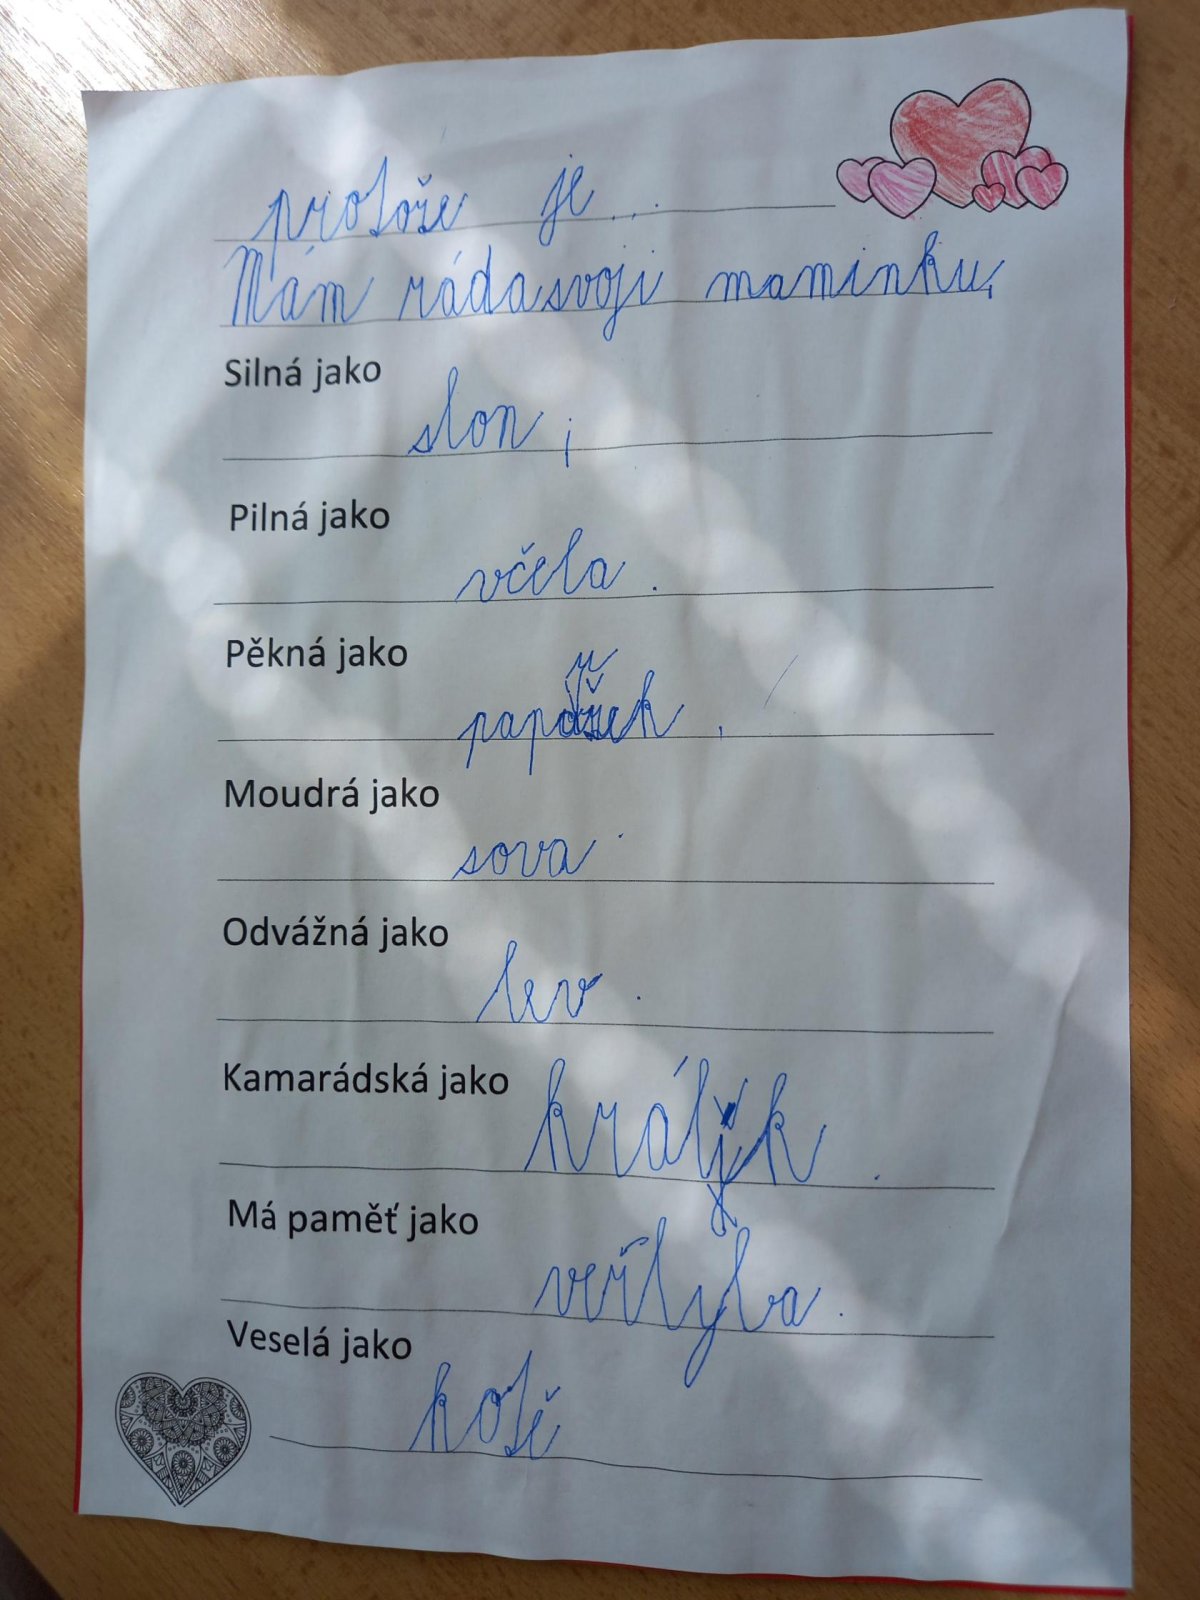 protože je...
Mám ráda svoji maminku,
Silná jako
slon,
Pilná jako
včela.
Pěkná jako
Moudrá jako
sova.
Odvážná jako
lev.
Kamarádská jako
králík.
Má paměť jako
veřlyba.
Veselá jako
kotě